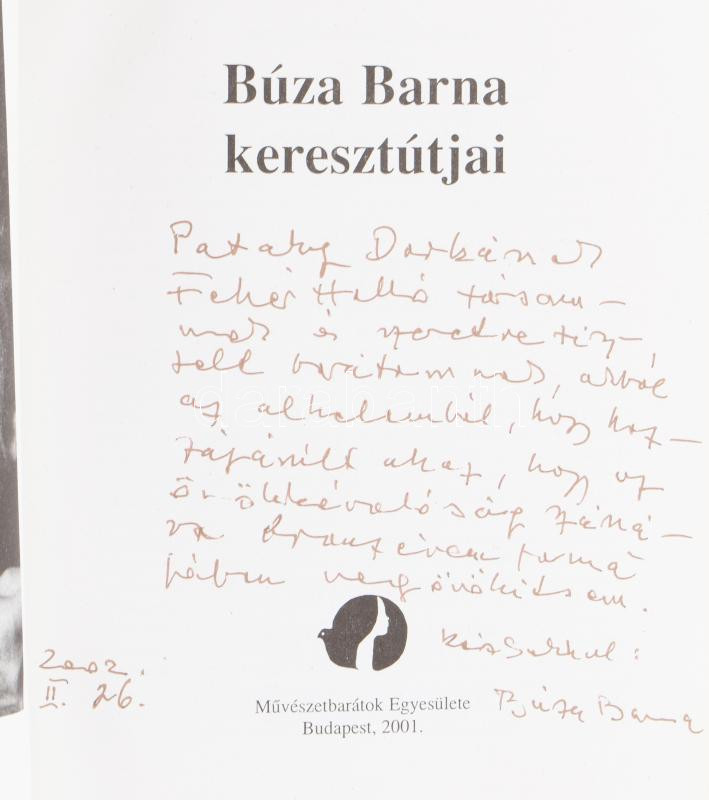 Búza Barna
keresztútjai
Pataky Dorkának
Fehér Holló társam-
nak és szeretve tisz-
telt barátomnak, abból
az alkalomból, hogy hoz-
zájárult ahoz, hogy az
örökkévalóság számá-
ra bronzérem formá
jában megörökítsem.
2002.
II. 26.
Művészetbarátok Egyesülete
Budapest, 2001.
Búza Barna
darabanth